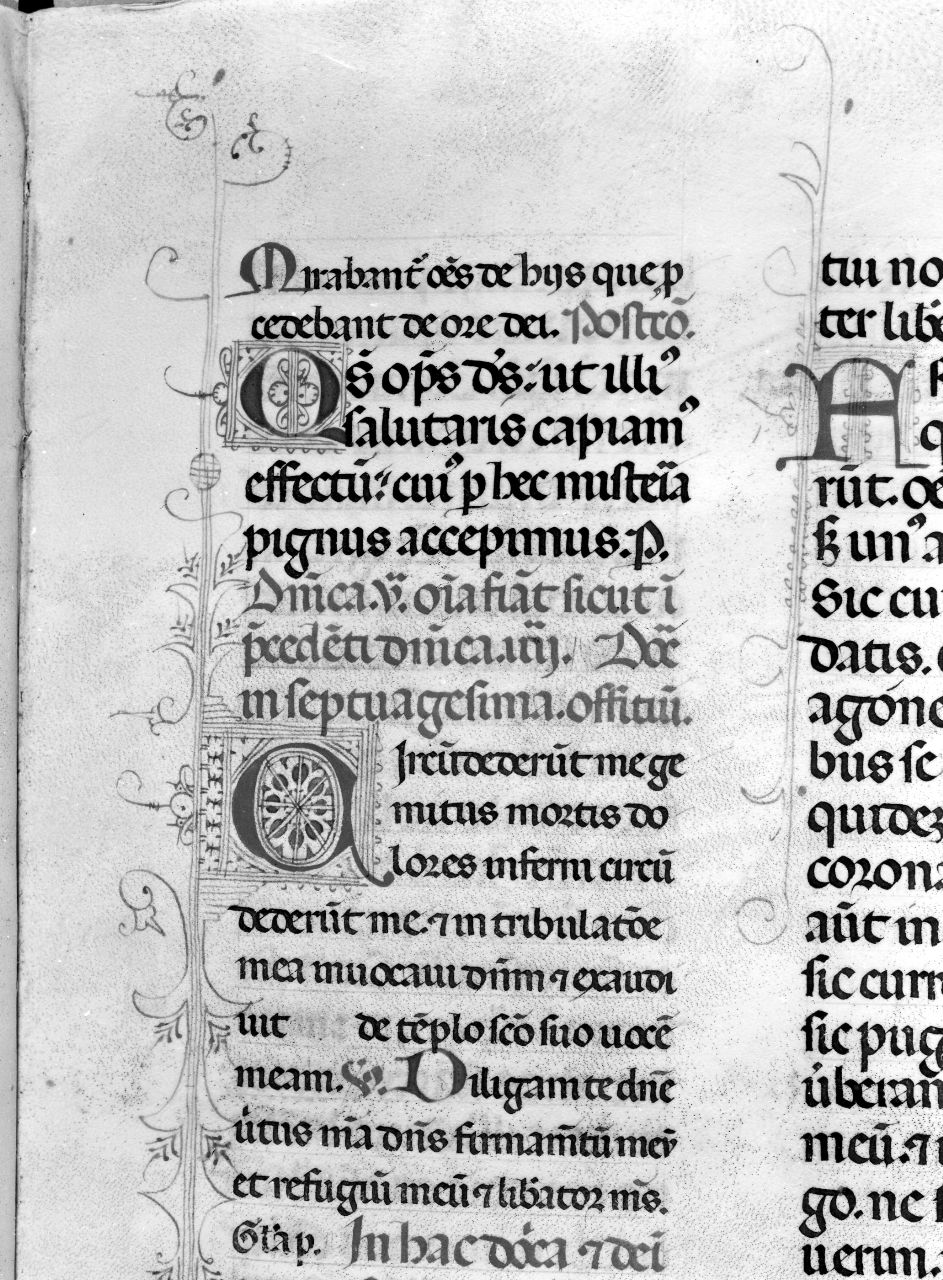 Mirabant᷑ oēs de hijs que ꝓ
cedebant de ore dei. Postcō.
Qs̄ op̄s ds̄: ut illiꝰ
salutaris capiamꝰ
effectū: cuiꝰ ꝑ hec misteīa
pignus accepimus. P.
Dn̄ica .v. oīa fiāt sicut ī
p̄cedēti dn̄ica .iiij. Dōc̄
in septuagesima. offitiū.
Circūdederūt me ge
mitus mortis do
lores inferni circū
dederūt me. ⁊ in tribulatōe
mea inuocaui dn̄m ⁊ exaudi
uit de tēplo scō suo uocē
meam. V̄. Diligam te dn̄e
uirtus m̄a dn̄s firmam̄tū meū
et refugiū meū ⁊ lib̄ator m̄s.
Gl̄a p̄. In hac dōica ⁊ dei
tui no
ter lib̄e
A
q
rūt. oē
sꝫ unꝰ a
Sic cu
datis.
agone
bus se
quidez
corona
aūt in
sic curr
sic pug
uberan
meū. ⁊
go. ne
uerim.